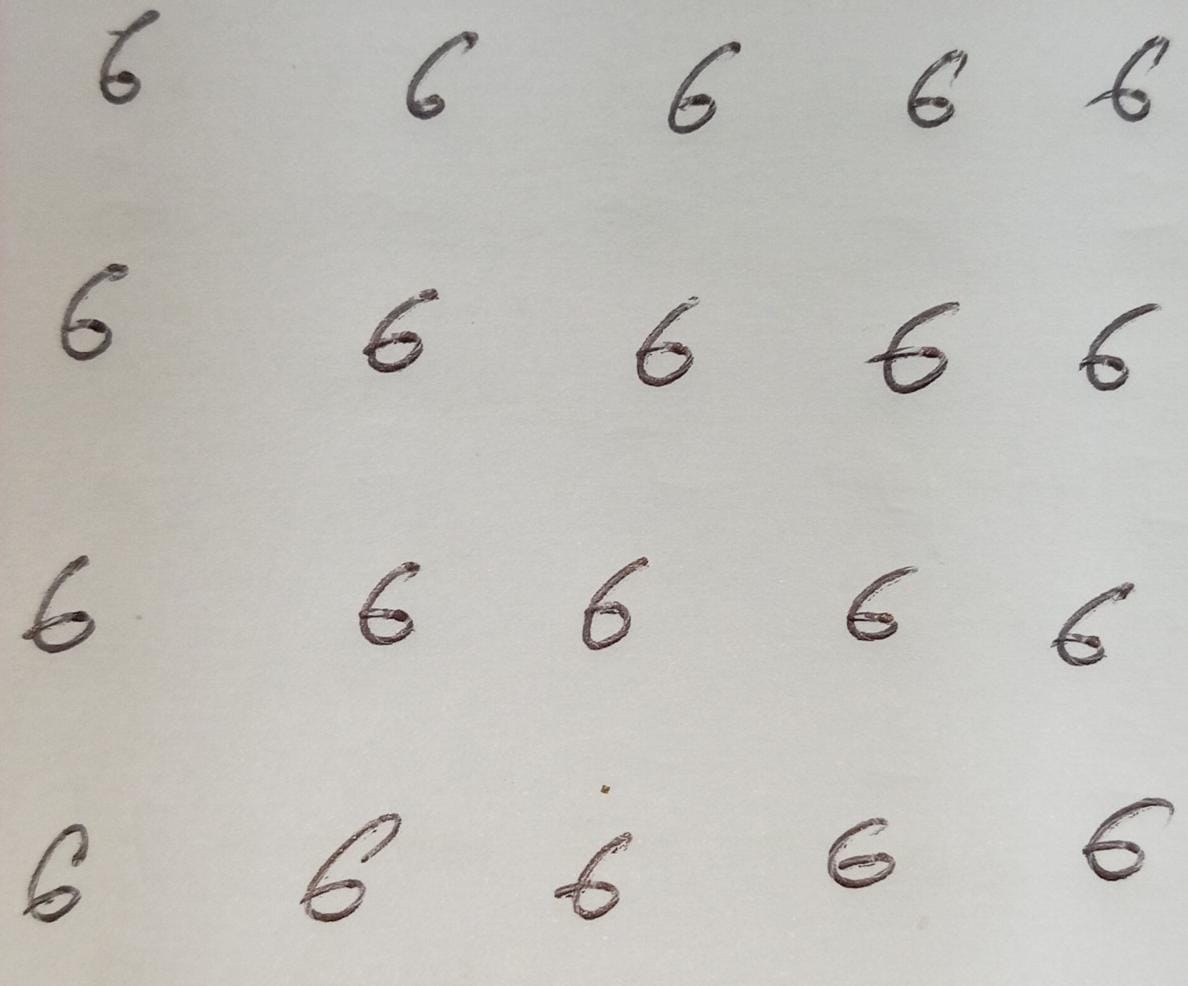 6 6 6 6 6
6 6 6 6 6
6 6 6 6 6
6 6 6 6 6